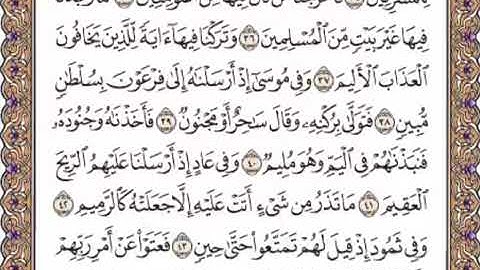 فِيهَا غَيْرَ بَيْتٍ مِّنَ ٱلْمُسْلِمِينَ ۝٣٦ وَتَرَكْنَا فِيهَآ ءَايَةً لِّلَّذِينَ يَخَافُونَ
ٱلْعَذَابَ ٱلْأَلِيمَ ۝٣٧ وَفِى مُوسَىٰٓ إِذْ أَرْسَلْنَٰهُ إِلَىٰ فِرْعَوْنَ بِسُلْطَٰنٍ
مُّبِينٍ ۝٣٨ فَتَوَلَّىٰ بِرُكْنِهِۦ وَقَالَ سَٰحِرٌ أَوْ مَجْنُونٌ ۝٣٩ فَأَخَذْنَٰهُ وَجُنُودَهُۥ
فَنَبَذْنَٰهُمْ فِى ٱلْيَمِّ وَهُوَ مُلِيمٌ ۝٤٠ وَفِى عَادٍ إِذْ أَرْسَلْنَا عَلَيْهِمُ ٱلرِّيحَ
ٱلْعَقِيمَ ۝٤١ مَا تَذَرُ مِن شَىْءٍ أَتَتْ عَلَيْهِ إِلَّا جَعَلَتْهُ كَٱلرَّمِيمِ ۝٤٢
وَفِى ثَمُودَ إِذْ قِيلَ لَهُمْ تَمَتَّعُوا۟ حَتَّىٰ حِينٍ ۝٤٣ فَعَتَوْا۟ عَنْ أَمْرِ رَبِّهِمْ